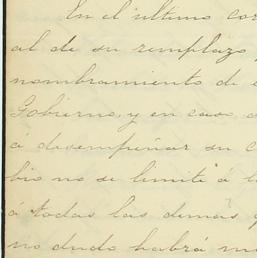 En el último cor
al de su remplazo
nombramiento de
Gobierno, y en caso
á desempeñar su c
bio no se limite á l
á todas las demás y
no dudo habrá me